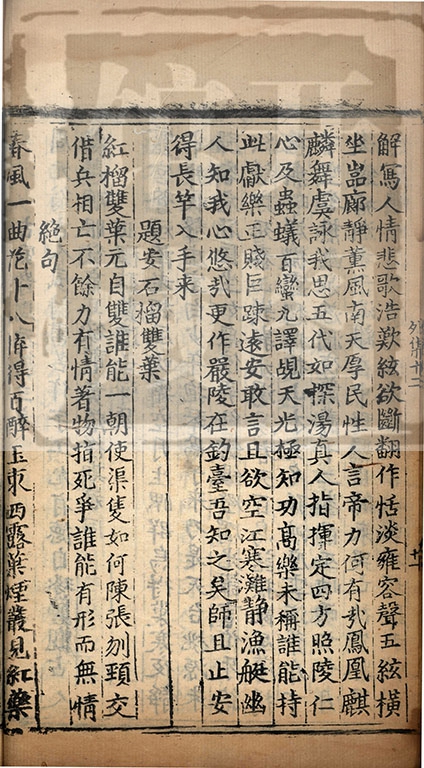 集十二
解寫人情悲歌浩歎絃欲斷翻作恬淡雍容聲五絃橫
坐嵓廊靜薰風南天厚民性人言帝力何有哉鳳凰麒
麟舞虞詠我思五代如探湯真人指揮定四方照陵仁
心及蟲蟻百蠻九譯覘天光極知功高樂未稱誰能持
此獻樂正賤臣踈遠安敢言且欲空江寒灘靜漁艇幽
人知我心悠哉更作嚴陵在釣臺吾知之矣師且止安
得長竿入手來
題安石榴雙葉
紅榴雙葉元自雙誰能一朝使渠隻如何陳張刎頸交
借兵相亡不餘力有情著物指死爭誰能有形而無情
絕句
春風一曲花十八拚得百醉玉東西露葉煙叢見紅藥